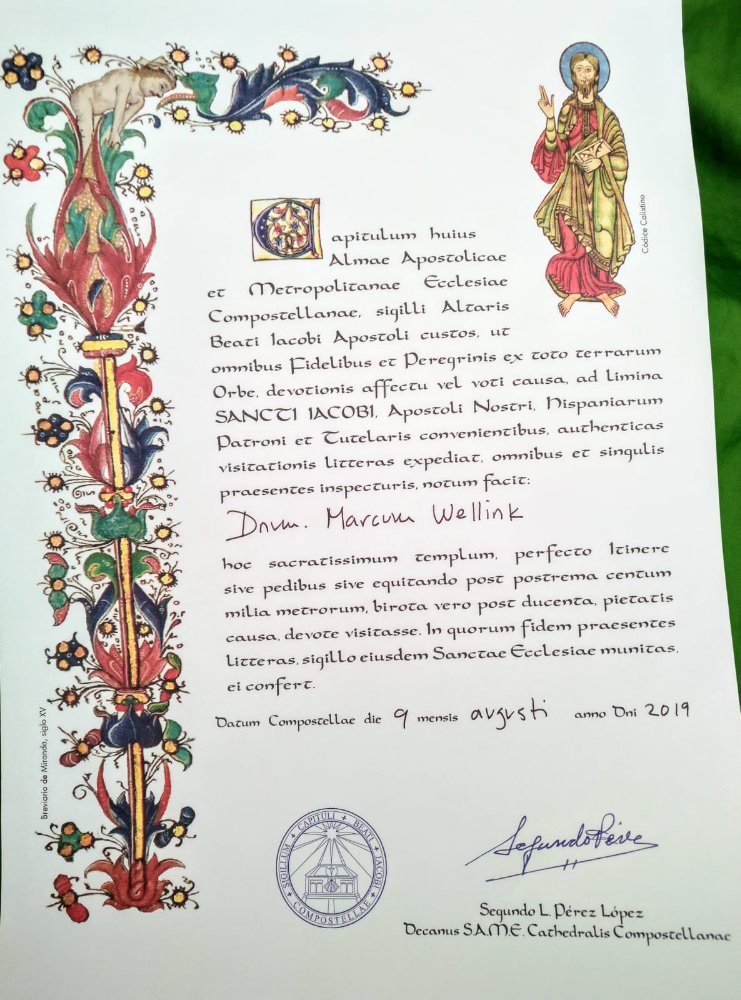 Capitulum huius
Almae Apostolicae
et Metropolitanae Ecclesiae
Compostellanae, sigilli Altaris
Beati Iacobi Apostoli custos, ut
omnibus Fidelibus et Peregrinis ex toto terrarum
Orbe, devotionis affectu vel voti causa, ad limina
SANCTI IACOBI, Apostoli Nostri, Hispaniarum
Patroni et Tutelaris convenientibus, authenticas
visitationis litteras expediat, omnibus et singulis
praesentes inspecturis, notum facit:
Dnum. Marcum Wellink
hoc sacratissimum templum, perfecto Itinere
sive pedibus sive equitando post postrema centum
milia metrorum, birota vero post ducenta, pietatis
causa, devote visitasse. In quorum fidem praesentes
litteras, sigillo eiusdem Sanctae Ecclesiae munitas,
ei confert.
Datum Compostellae die 9 mensis augusti anno Dni 2019
Códice Calixtino
Breviario de Miranda, siglo XV
SIGILLUM + CAPITULI + BEATI + JACOBI + COMPOSTELLAE +
Segundo Pérez
Segundo L. Pérez López
Decanus S.A.M.E. Cathedralis Compostellanae